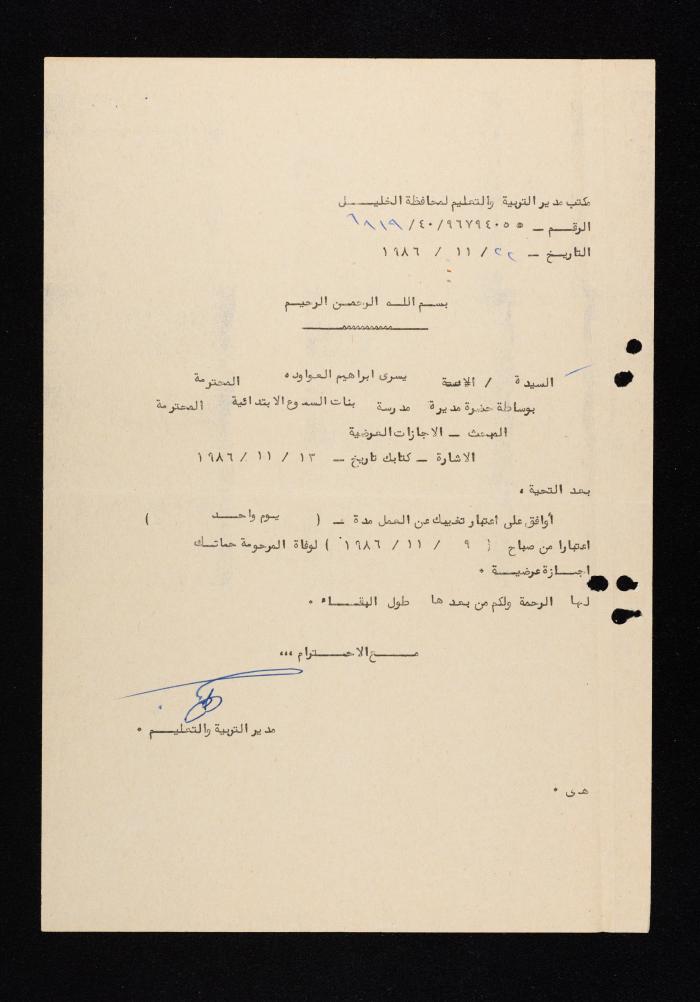 مكتب مدير التربية والتعليم لمحافظة الخليــــل
الرقــم ــ ٩٦٧٩٤٠٥ /٤٠/ ٦٨١٩
التاريـخ ــ ٢٢ / ١١ / ١٩٨٦
بســم اللــه الرحمــن الرحيــم
السيدة / الانسة يسرى ابراهيم العواوده المحترمة
بوساطة حضرة مديرة مدرسة بنات السموع الابتدائية المحترمة
المبحث ــ الاجازات العرضية
الاشارة ــ كتابك تاريخ ــ ١٣ / ١١ / ١٩٨٦
بعد التحية ،
أوافق على اعتبار تغيبك عن العمل مدة ــ ( يــوم واحــد )
اعتبارا من صباح ( ٩ / ١١ / ١٩٨٦ ) لوفاة المرحومة حماتــك
اجـــازة عرضيـــة ٠
لـها الرحمة ولكم من بعد ها طول البقـــاء ٠
مـــع الاحتـــرام ،،،
مدير التربية والتعليـــم ٠
هـ ى ٠